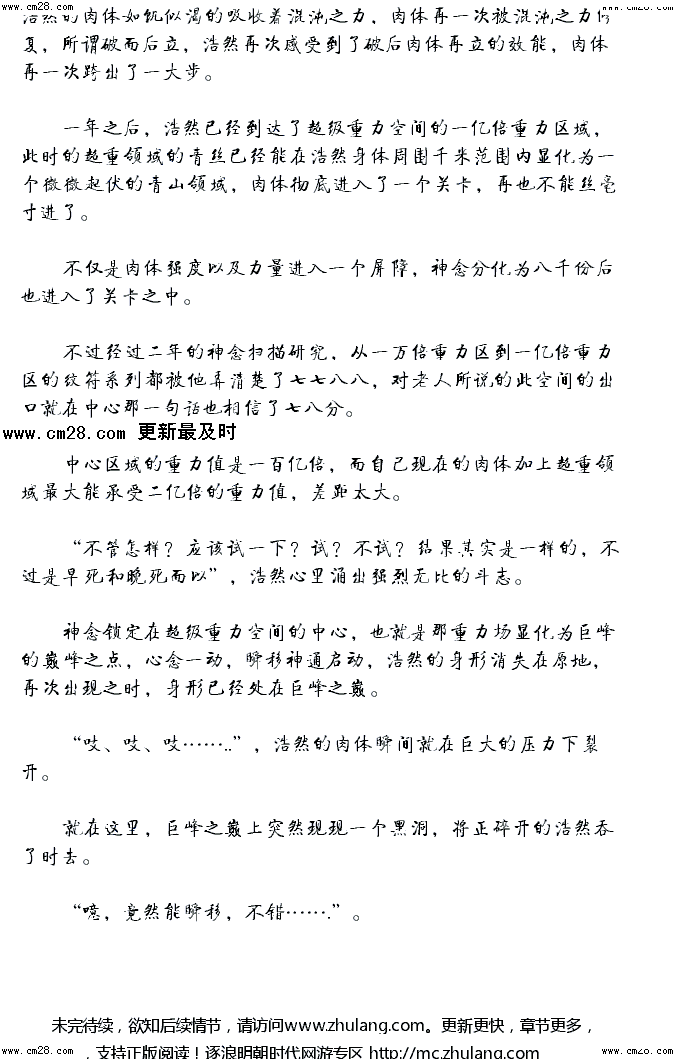 www.cm28.com www.cm28.com
浩然的肉体如饥似渴的吸收着混沌之力，肉体再一次被混沌之力修
复，所谓破而后立，浩然再次感受到了破后肉体再立的效能，肉体
再一次跨出了一大步。
一年之后，浩然已经到达了超级重力空间的一亿倍重力区域，
此时的超重领域的青丝已经能在浩然身体周围千米范围内显化为一
个微微起伏的青山领域，肉体彻底进入了一个关卡，再也不能丝毫
寸进了。
不仅是肉体强度以及力量进入一个屏障，神念分化为八千份后
也进入了关卡之中。
不过经过二年的神念扫描研究，从一万倍重力区到一亿倍重力
区的纹符系列都被他弄清楚了七七八八，对老人所说的此空间的出
口就在中心那一句话也相信了七八分。
www.cm28.com 更新最及时
中心区域的重力值是一百亿倍，而自己现在的肉体加上超重领
域最大能承受二亿倍的重力值，差距太大。
“不管怎样？应该试一下？试？不试？结果其实是一样的，不
过是早死和晚死而以”，浩然心里涌出强烈无比的斗志。
神念锁定在超级重力空间的中心，也就是那重力场显化为巨峰
的巅峰之点，心念一动，瞬移神通启动，浩然的身形消失在原地，
再次出现之时，身形已经处在巨峰之巅。
“吱、吱、吱……..”，浩然的肉体瞬间就在巨大的压力下裂
开。
就在这里，巨峰之巅上突然现现一个黑洞，将正碎开的浩然吞
了时去。
“噫，竟然能瞬移，不错…….”。
未完待续，欲知后续情节，请访问www.zhulang.com。更新更快，章节更多，
，支持正版阅读！逐浪明朝时代网游专区 http://mc.zhulang.com
www.cm28.com www.cm28.com